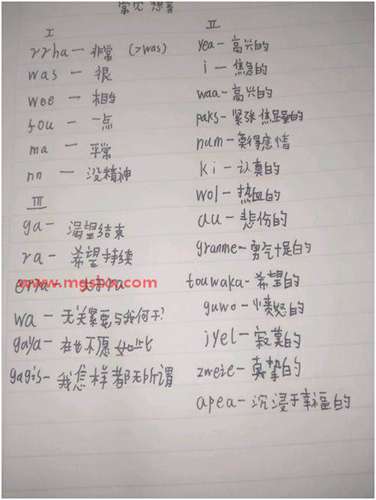 常见 想音
I
rrha — 非常 (>was)
was — 很
wee — 相当
fou — 一点
ma — 平常
nn — 没精神
III
ga — 渴望结束
ra — 希望持续
erra — 大于ra
wa — 无关紧要与我何干?
gaya — 在也不愿如此
gagis — 我怎样都无所谓
II
yea — 高兴的
i — 焦急的
waa — 高兴的
paks — 紧张焦虑的
num — 莫得感情
ki — 认真的
wol — 热血的
au — 悲伤的
granme — 勇气十足的
touwaka — 希望的
guwo — 愤怒的
jyel — 寂寞的
zweie — 真挚的
apea — 沉浸于幸福的
www.mgsbox.com